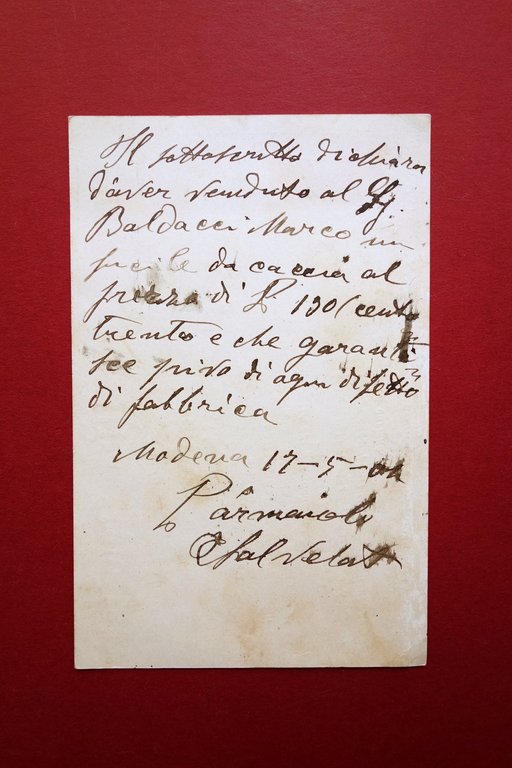 Il sottoscritto dichiara
d'aver venduto al Sg.
Baldacci Marco un
fucile da caccia al
prezzo di L. 130 (cento
trenta e che garanti
sce privo di ogni difetto
di fabbrica
Modena 17-5-